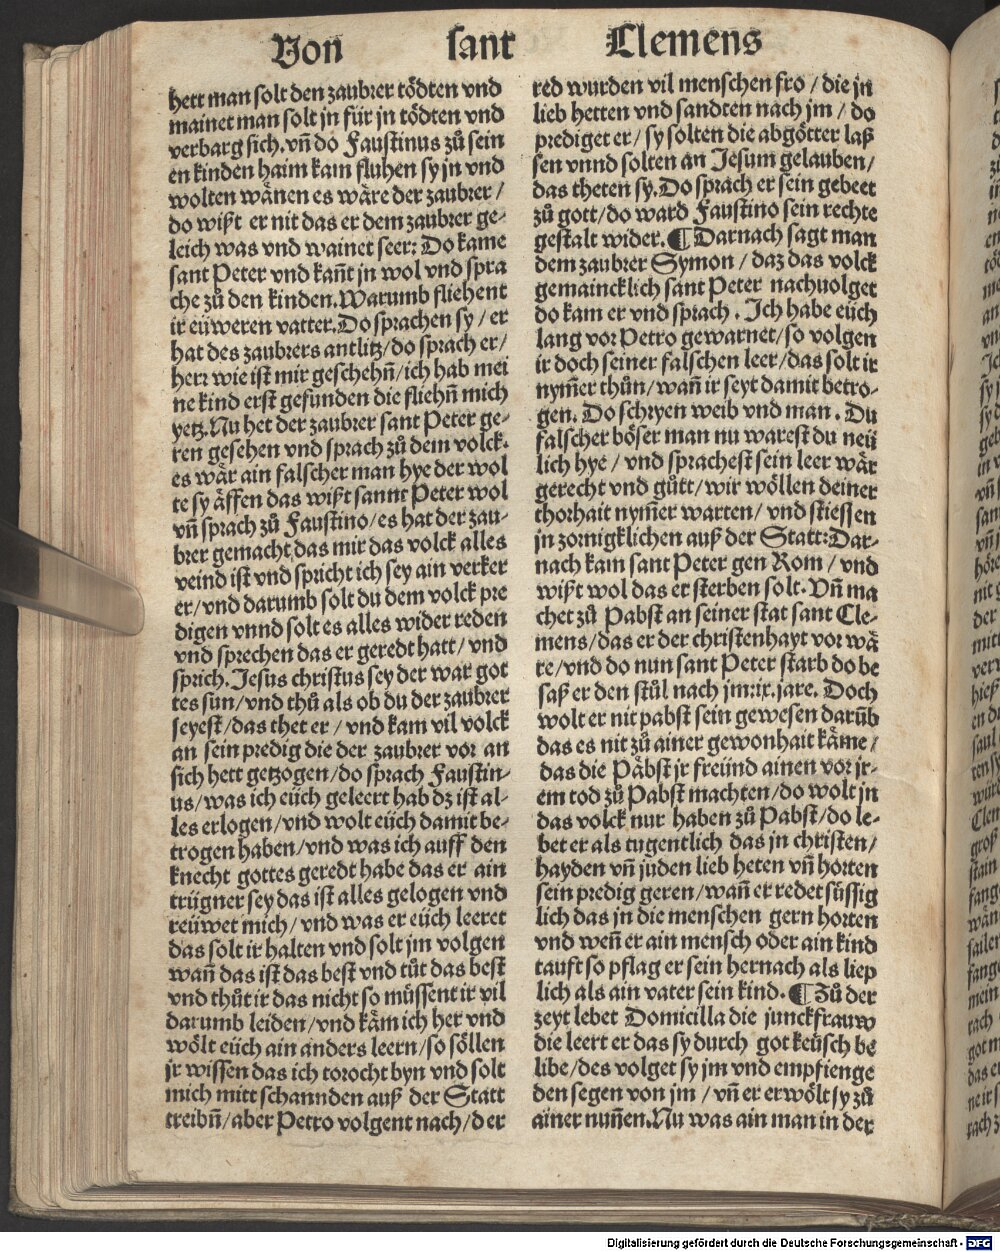 Von sant Clemens
hett man solt den zaubrer tödten vnd
mainet man solt jn für in tödten vnd
verbarg sich. vn̄ do Faustinus zů sein
en kinden haim kam fluhen sy jn vnd
wolten wänen es wäre der zaubrer /
do wißt er nit das er dem zaubrer ge⸗
leich was vnd wainet seer: Do kame
sant Peter vnd kañt jn wol vnd spra
che zů den kinden. Warumb fliehent
ir eüweren vatter. Do sprachen sy / er
hat des zaubrers antlitz / do sprach er /
herr wie ist mir geschehn̄ / ich hab mei
ne kind erst gefunden die fliehn̄ mich
yetz. Nu het der zaubrer sant Peter ge⸗
ren gesehen vnd sprach zů dem volck.
es wär ain falscher man hye der wol
te sy äffen das wißt sannt Peter wol
vn̄ sprach zů Faustino / es hat der zau⸗
brer gemacht das mir das volck alles
veind ist vnd spricht ich sey ain verker
er / vnd darumb solt du dem volck pre
digen vnnd solt es alles wider reden
vnd sprechen das er geredt hatt / vnd
sprich. Jesus christus sey der war got
tes sun / vnd thů als ob du der zaubrer
seyest / das thet er / vnd kam vil volck
an sein predig die der zaubrer vor an
sich hett getzogen / do sprach Faustin⸗
us / was ich eüch geleert hab dz ist al⸗
les erlogen / vnd wolt eüch damit be⸗
trogen haben / vnd was ich auff den
knecht gottes geredt habe das er ain
trügner sey das ist alles gelogen vnd
reüwet mich / vnd was er eüch leeret
das solt ir halten vnd solt jm volgen
wañ das ist das best vnd tůt das best
vnd thůt ir das nicht so müssent ir vil
darumb leiden / vnd käm ich her vnd
wölt eüch ain anders leern / so söllen
jr wissen das ich torocht byn vnd solt
mich mitt schannden auß der Statt
treibn̄ / aber Petro volgent nach / d er
red wurden vil menschen fro / die jn
lieb hetten vnd sandten nach jm / do
prediget er / sy solten die abgötter laß
sen vnnd solten an Jesum gelauben /
das theten sy. Do sprach er sein gebeet
zů gott / do ward Faustino sein rechte
gestalt wider. ¶ Darnach sagt man
dem zaubrer Symon / daz das volck
gemaincklich sant Peter nachuolget
do kam er vnd sprach . Ich habe eüch
lang vor Petro gewarnet / so volgen
ir doch seiner falschen leer / das solt ir
nym̄er thůn / wañ ir seyt damit betro⸗
gen. Do schryen weib vnd man . Du
falscher böser man nu warest du neü
lich hye / vnd sprachest sein leer wär
gerecht vnd gůtt / wir wöllen deiner
thorhait nym̄er warten / vnd stiessen
jn zornigklichen auß der Statt: Dar⸗
nach kam sant Peter gen Rom / vnd
wißt wol das er sterben solt. Vn̄ ma
chet zů Pabst an seiner stat sant Cle⸗
mens / das er der christenhayt vor wä
re / vnd do nun sant Peter starb do be
saß er den stůl nach jm: ix. jare. Doch
wolt er nit pabst sein gewesen darūb
das es nit zů ainer gewonhait käme /
das die Päbst jr freünd ainen vor jr⸗
em tod zů Pabst machten / do wolt jn
das volck nur haben zů Pabst / do le⸗
bet er als tugentlich das jn christen /
hayden vn̄ juden lieb heten vn̄ horten
sein predig geren / wañ er redet süssig
lich das jn die menschen gern horten
vnd weñ er ain mensch oder ain kind
tauft so pflag er sein hernach als liep
lich als ain vater sein kind. ¶ Zů der
zeyt lebet Domicilla die junckfrauw
die leert er das sy durch got keüsch be
libe / des volget sy jm vnd empfienge
den segen von jm / vn̄ er erwölt sy zů
ainer nunnen. Nu was ain man in der
Digitalisierung gefördert durch die Deutsche Forschungsgemeinschaft - DFG